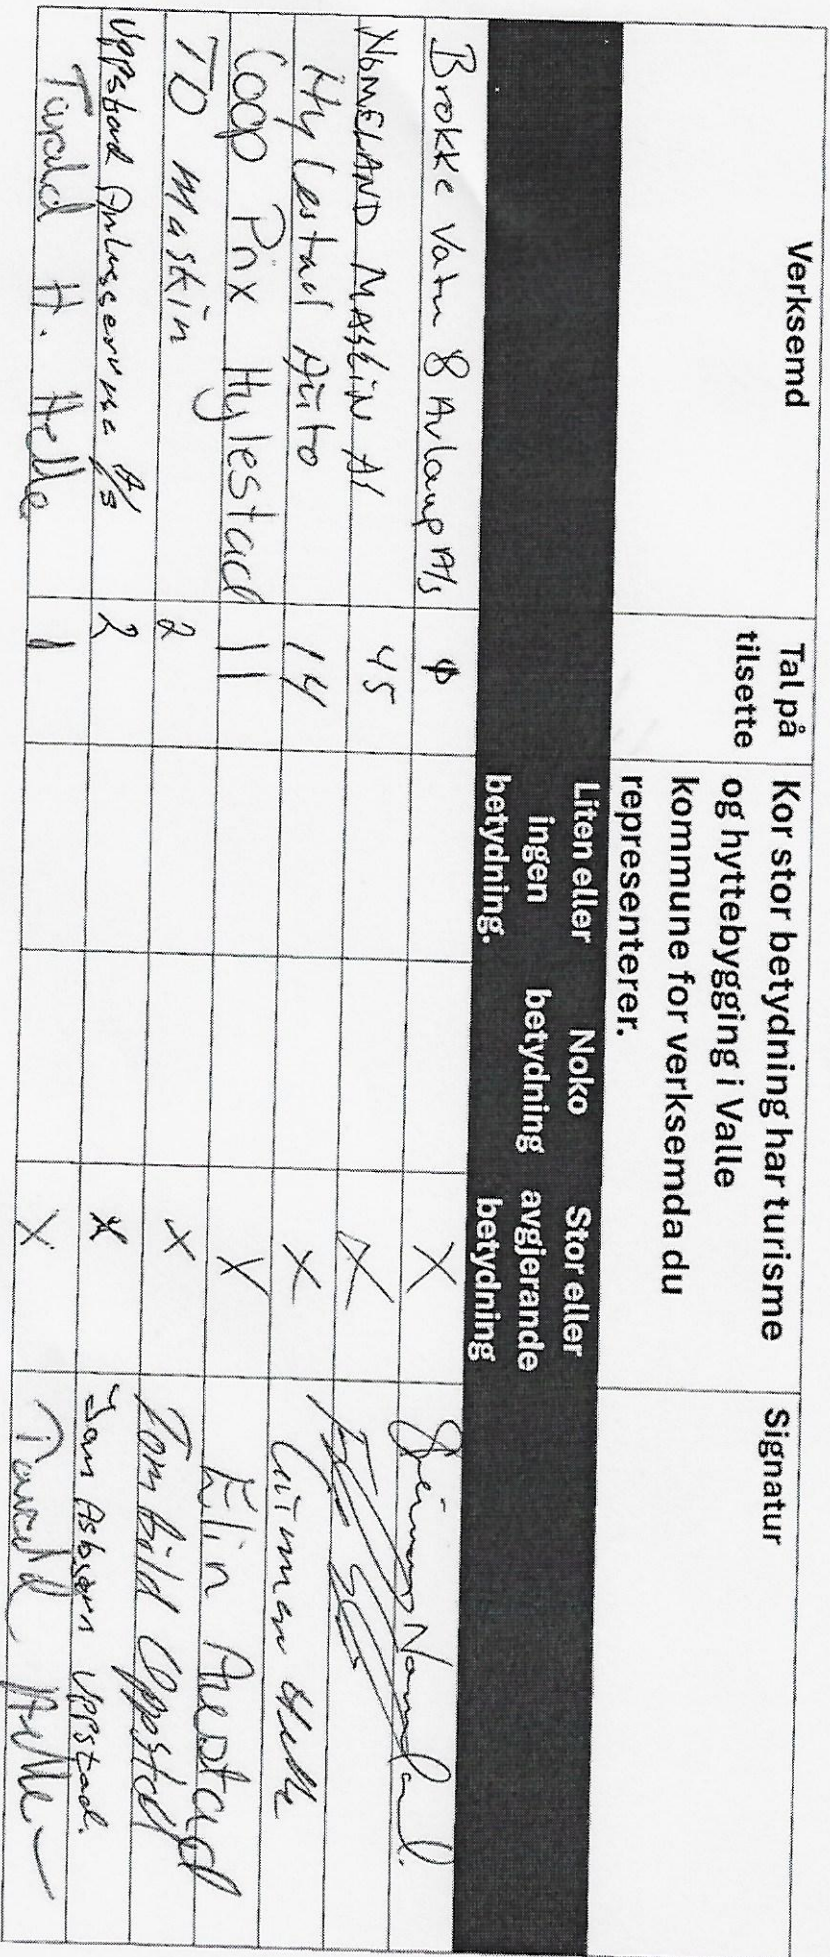 Verksemd
Tal på tilsette
Kor stor betydning har turisme og hyttebygging i Valle kommune for verksemda du representerer.
Signatur
Liten eller ingen betydning.
Noko betydning
Stor eller avgjerande betydning
Brokke Vatn & Avlaup A/s φ X Nomeland.
NOMELAND MASKIN AS 45 X
Hylestad Auto 14 X Helle
Coop Prix Hylestad 11 X Elin Auestad
TO Maskin 2 X Uppstad
Uppstad A/S 2 x Jan Asbjørn Uppstad.
Tarald H. Helle 1 X Tarald Helle